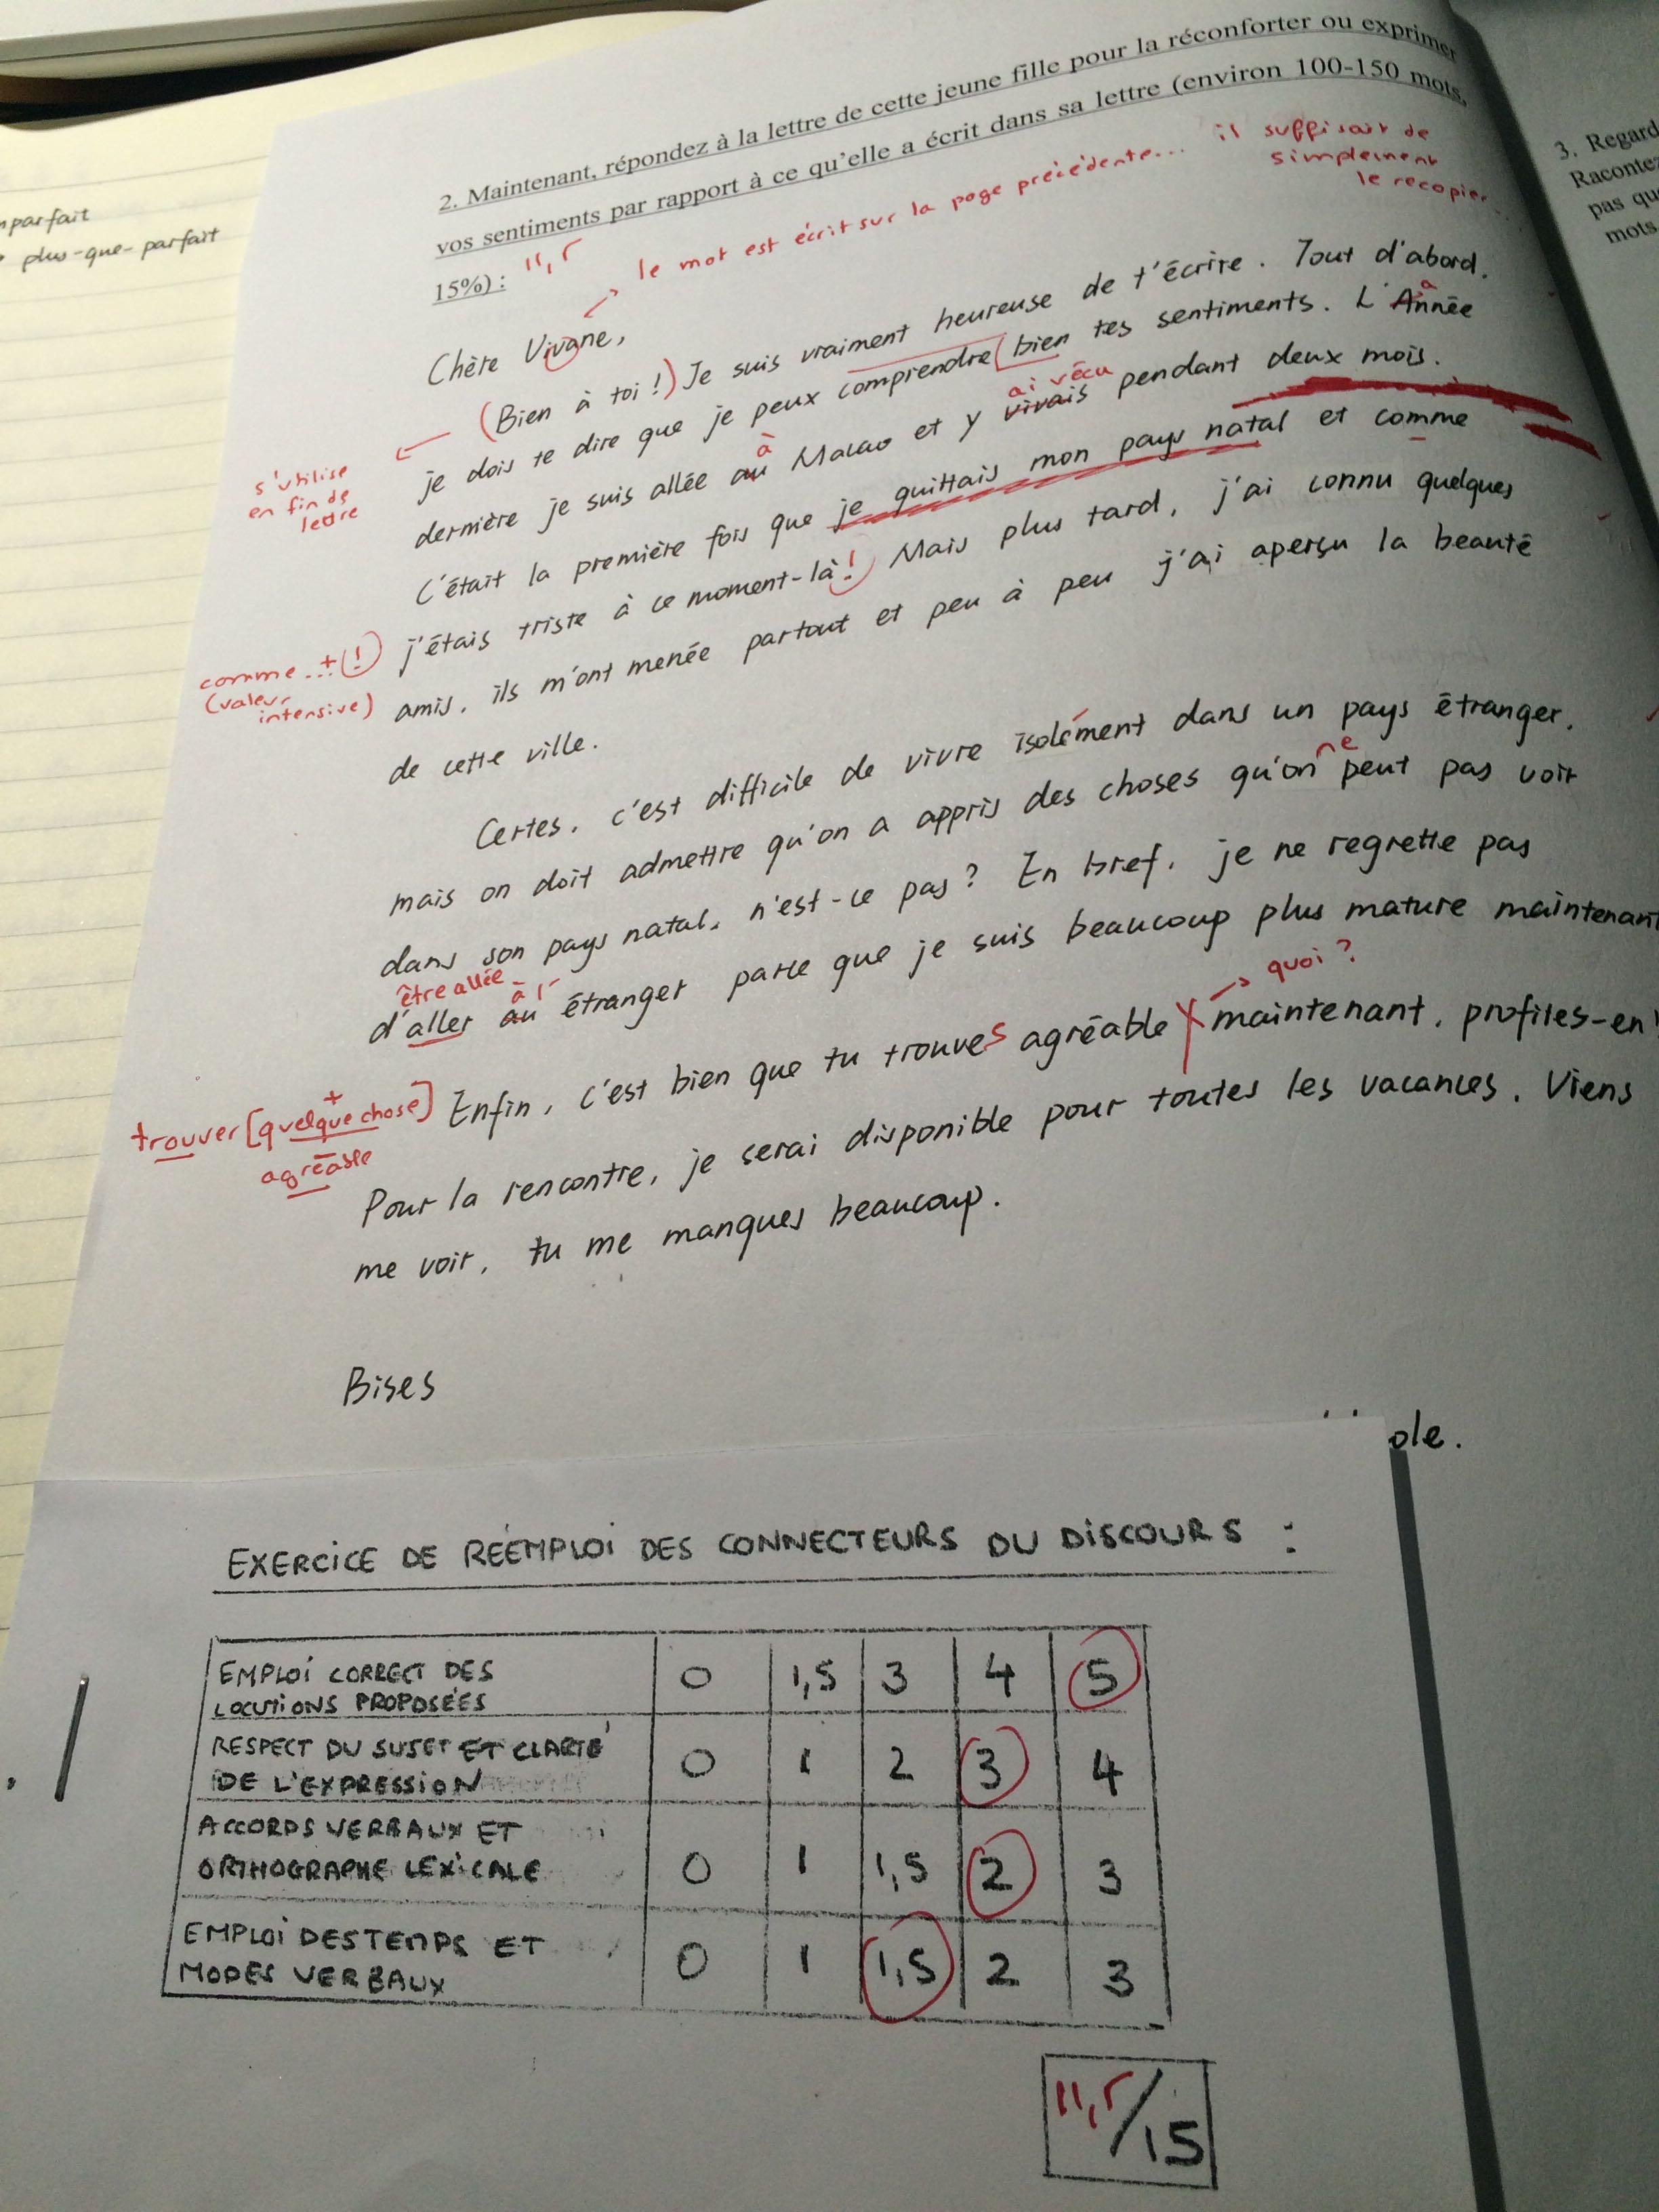 parfait
plus-que-parfait
2. Maintenant, répondez à la lettre de cette jeune fille pour la réconforter ou exprimer
vos sentiments par rapport à ce qu'elle a écrit dans sa lettre (environ 100-150 mots,
15%) :
11,5
le mot est écrit sur la page précédente... il suffisait de
simplement
le recopier...
3. Regard
Racontez
pas qu
mots
Chère Vivane,
(Bien à toi !) Je suis vraiment heureuse de t'écrire. Tout d'abord,
s'utilise
en fin de
lettre
je dois te dire que je peux comprendre bien tes sentiments. L'Année
a
dernière je suis allée au Macao et y vivais pendant deux mois.
à
ai vécu
C'était la première fois que je quittais mon pays natal et comme
j'étais triste à ce moment-là ! Mais plus tard, j'ai connu quelques
comme...+(!)
(valeur
intensive)
amis, ils m'ont menée partout et peu à peu j'ai aperçu la beauté
de cette ville.
Certes, c'est difficile de vivre isolément dans un pays étranger,
mais on doit admettre qu'on a appris des choses qu'on peut pas voir
ne
dans son pays natal, n'est-ce pas ? En bref, je ne regrette pas
d'aller au étranger parce que je suis beaucoup plus mature maintenant
être allée
à l'
Enfin, c'est bien que tu trouves agréable maintenant, profites-en !
quoi ?
trouver [quelque chose]
+
agréable
Pour la rencontre, je serai disponible pour toutes les vacances. Viens
me voir, tu me manques beaucoup.
Bises
ole.
EXERCICE DE RÉEMPLOI DES CONNECTEURS DU DISCOURS :
EMPLOI CORRECT DES LOCUTIONS PROPOSÉES 0 1,5 3 4 5
RESPECT DU SUJET ET CLARTÉ DE L'EXPRESSION 0 1 2 3 4
ACCORDS VERBAUX ET ORTHOGRAPHE LEXICALE 0 1 1,5 2 3
EMPLOI DES TEMPS ET MODES VERBAUX 0 1 1,5 2 3
11,5/15